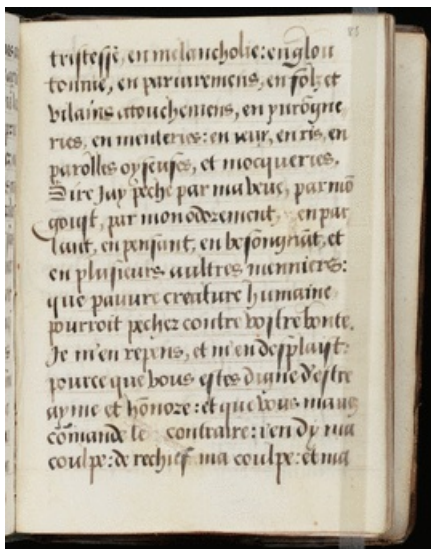 85
tristesse, en melancholie: en glou
tonnie, en pariuremens, en folz et
vilains atouchemens, en yurōgne
ries, en menteries: en ieux, en ris, en
parolles oyseuses, et mocqueries.
Sire Jay peche par ma veue, par mō
goust, par mon odorement, en par
lant, en pensant, en besongnāt, et
en plusieurs aultres mennieres:
que pauure creature humaine
pourroit pecher contre vostre bonte.
Je m'en repens, et m'en desplaist:
pource que vous estes digne d'estre
ayme et honore: et que vous m'auez
cōmande le contraire: i'en dy ma
coulpe: de rechief ma coulpe: et ma